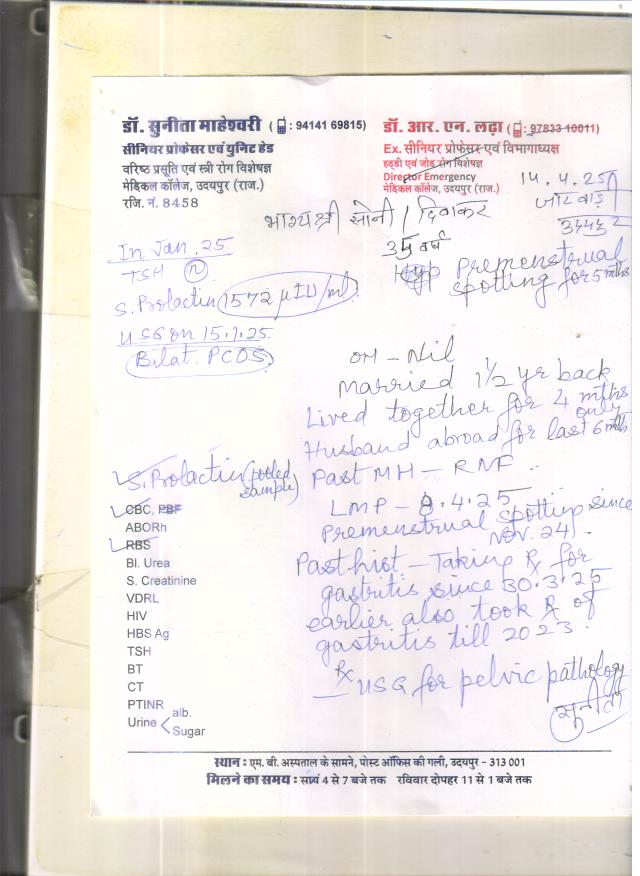 डॉ. सुनीता माहेश्वरी ( : 94141 69815)
सीनियर प्रोफेसर एवं युनिट हेड
वरिष्ठ प्रसूति एवं स्त्री रोग विशेषज्ञ
मेडिकल कॉलेज, उदयपुर (राज.)
रजि. नं. 8458
डॉ. आर. एन. लढ़ा ( : 97833 10011)
Ex. सीनियर प्रोफेसर एवं विभागाध्यक्ष
हड्डी एवं जोड़ रोग विशेषज्ञ
Director Emergency
मेडिकल कॉलेज, उदयपुर (राज.)
14.4.25
भाग्यश्री सोनी / दिवाकर
35 वर्ष
Premenstrual
spotting for 5 mths
In Jan. 25
TSH (N)
S. Prolactin 1572 µIU/ml
USG on 15.1.25
Bilat. PCOS
OH - Nil
Married 1½ yr back
Lived together for 4 mths
only
Husband abroad for last 6 mths
Past MH - RNF
LMP - 8.4.25
Premenstrual spotting since
Nov. 24
Past hist - Taking Rx for
gastritis since 30.3.25
earlier also took Rx of
gastritis till 2023
Rx
USG for pelvic pathology
सुनीता
S. Prolactin (pooled
sample)
CBC, PBF
ABORh
RBS
Bl. Urea
S. Creatinine
VDRL
HIV
HBS Ag
TSH
BT
CT
PTINR
Urine < alb.
Sugar
स्थान : एम. बी. अस्पताल के सामने, पोस्ट ऑफिस की गली, उदयपुर - 313 001
मिलने का समय : सायं 4 से 7 बजे तक रविवार दोपहर 11 से 1 बजे तक